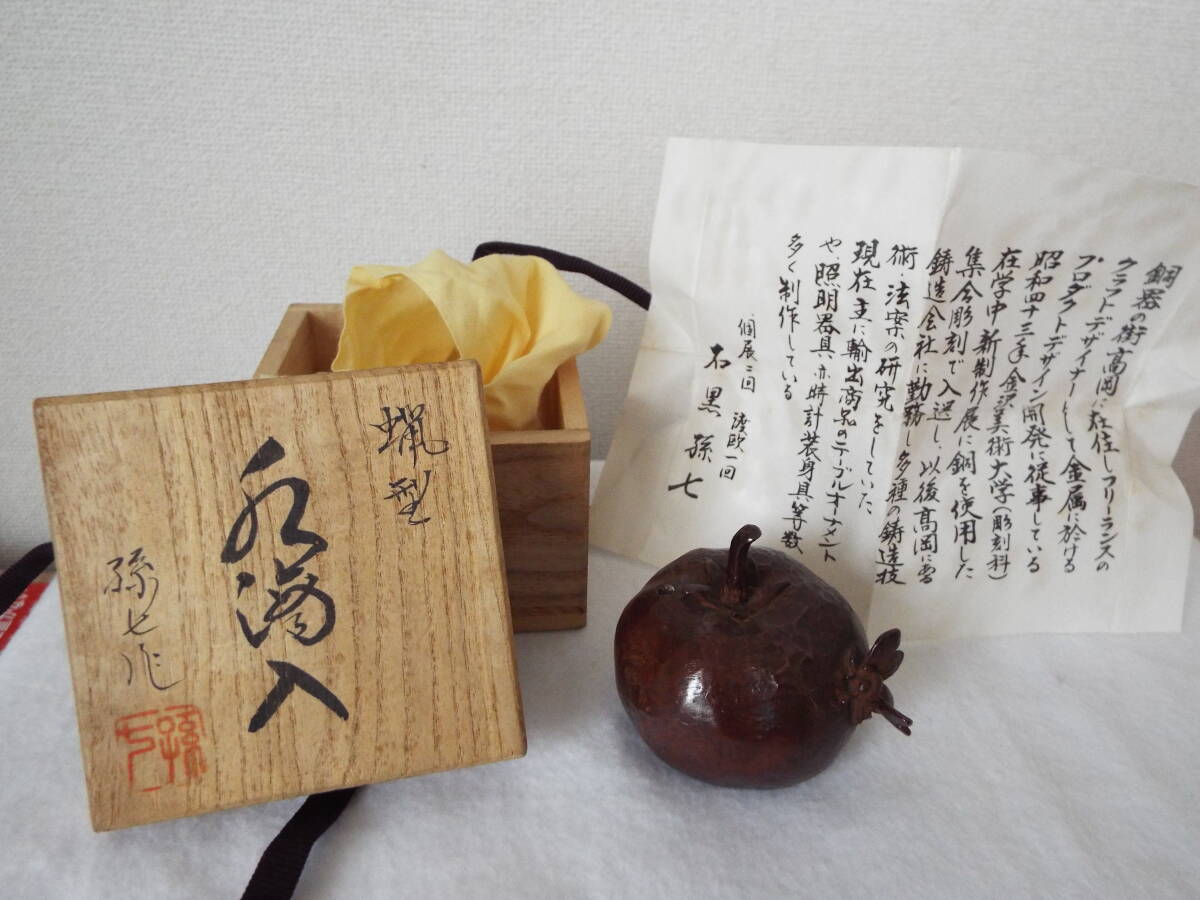 蝋型
水滴入
孫七作
孫七
銅器の街高岡に在住しフリーランスの
クラフトデザイナーとして金属に於ける
プロダクトデザイン開発に従事している
昭和四十三年金沢美術大学(彫刻科)
在学中新制作展に銅を使用した
集合彫刻で入選し、以後高岡に帰
鋳造会社に勤務し多種の鋳造技
術・法案の研究をしていた
現在主に輸出商品のテーブルオーナメント
や、照明器具、亦時計装身具等数
多く制作している
個展二回 渡欧一回
石黒孫七